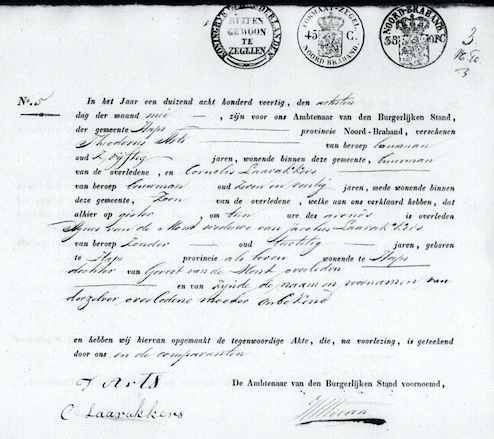 KONINGRYK DER NEDERLANDEN
BUITEN
GEWOON
TE
ZEGELEN
FORMAAT-ZEGEL
45 C.
NOORD BRABAND.
NOORD-BRABAND.
38
OPC
3
No. 5
In het Jaar een duizend acht honderd veertig, den achsten
dag der maand mei, zijn voor ons Ambtenaar van den Burgerlijken Stand,
der gemeente Haps provincie Noord-Braband, verschenen
Theodorus Arts van beroep bouwman
oud vijftig jaren, wonende binnen deze gemeente, buurman
van de overledene, en Cornelis Laarakkers
van beroep bouwman oud zeven en veertig jaren, mede wonende binnen
deze gemeente, Zoon van de overledene, welke aan ons verklaard hebben, dat
alhier op gister, om tien ure des avonds is overleden
van de Mont weduwe van Jacobus Laarakkers
van beroep Zonder oud tachtig jaren, geboren
te Haps provincie als boven wonende te Haps
dochter van Govert van de Mont overleden
en van zijnde de naam en voornamen van
derzelver overledene moeder onbekend
en hebben wij hiervan opgemaakt de tegenwoordige Akte, die, na voorlezing, is geteekend
door ons en de comparanten
T Arts
De Ambtenaar van den Burgerlijken Stand voornoemd,
C Laarakkers